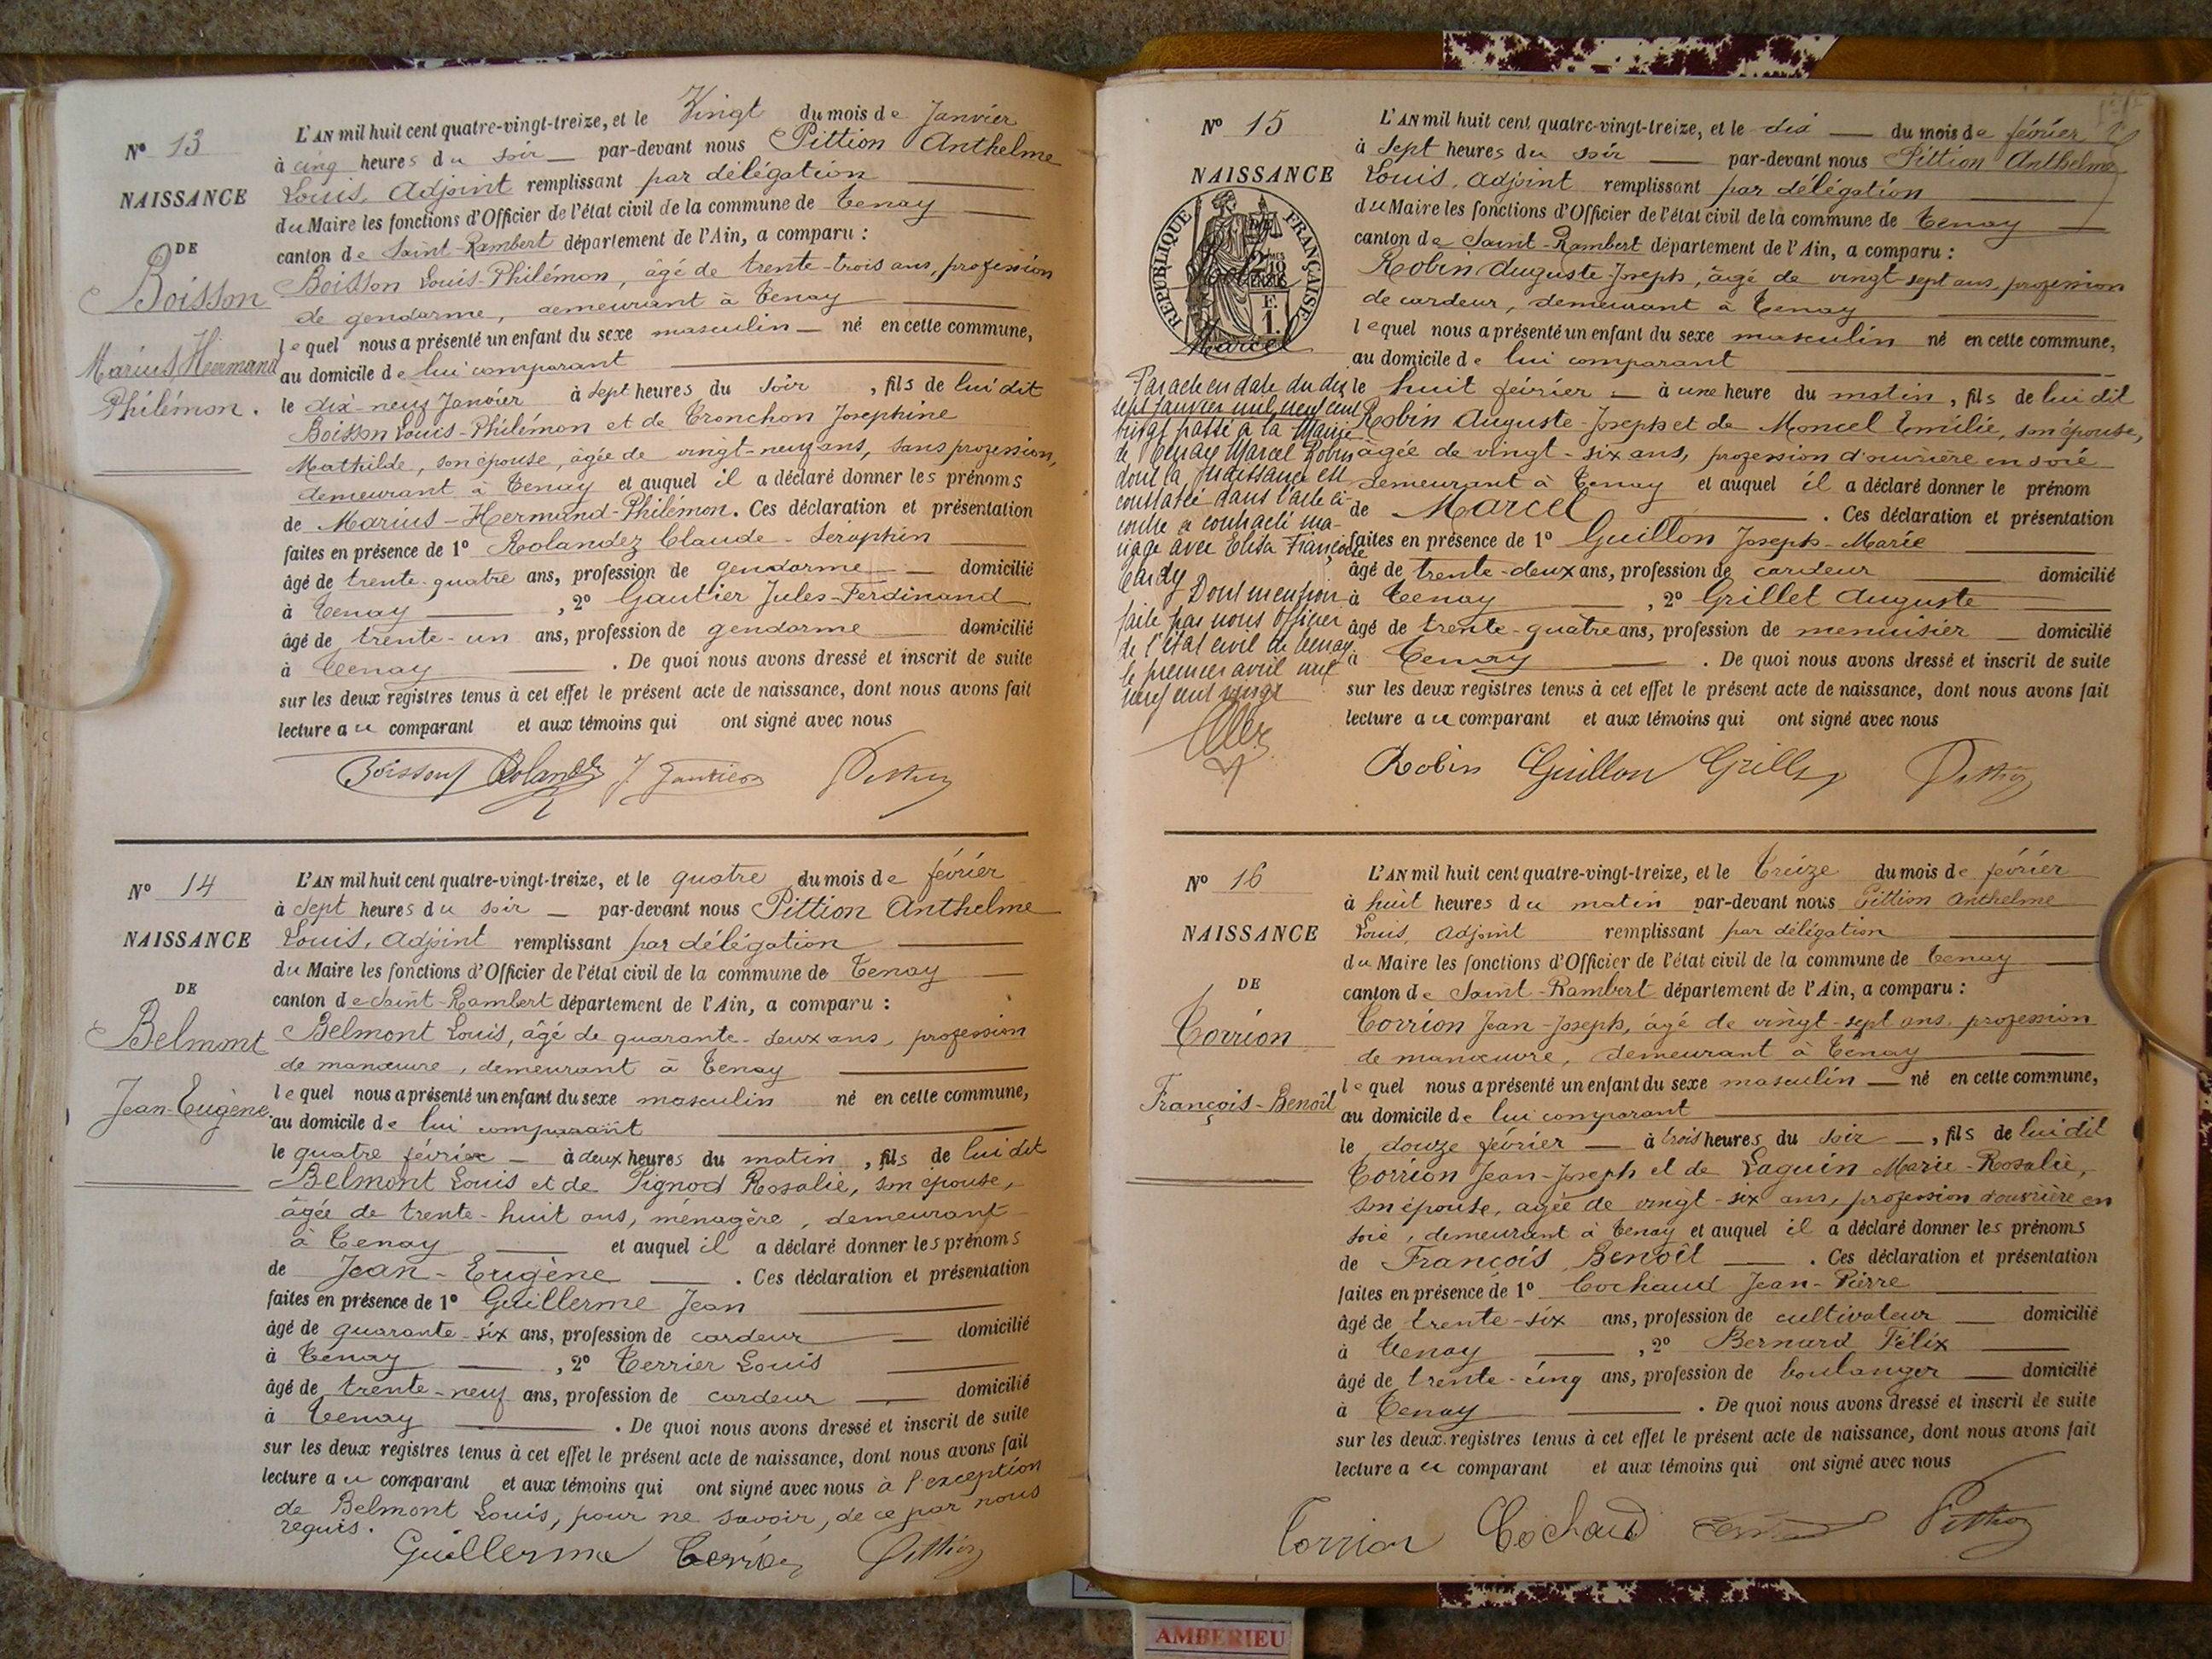 N° 13
NAISSANCE
DE
Boisson
Marius Hermand
Philémon.
L'AN mil huit cent quatre-vingt-treize, et le Vingt du mois de Janvier
à cinq heures du soir — par-devant nous Pittion Anthelme
Louis, Adjoint remplissant par délégation
du Maire les fonctions d'Officier de l'état civil de la commune de Tenay
canton de Saint-Rambert département de l'Ain, a comparu :
Boisson Louis-Philémon, âgé de trente-trois ans, profession
de gendarme, demeurant à Tenay
lequel nous a présenté un enfant du sexe masculin — né en cette commune,
au domicile de lui comparant
le dix-neuf Janvier à sept heures du soir, fils de lui dit
Boisson Louis-Philémon et de Tronchon Josephine
Mathilde, son épouse, âgée de vingt-neuf ans, sans profession,
demeurant à Tenay et auquel il a déclaré donner les prénoms
de Marius-Hermand-Philémon. Ces déclaration et présentation
faites en présence de 1° Rolandez Claude-Séraphin
âgé de trente-quatre ans, profession de gendarme — domicilié
à Tenay, 2° Gautier Jules-Ferdinand
âgé de trente-un ans, profession de gendarme domicilié
à Tenay. De quoi nous avons dressé et inscrit de suite
sur les deux registres tenus à cet effet le présent acte de naissance, dont nous avons fait
lecture au comparant et aux témoins qui ont signé avec nous
Boisson Rolandez J Gautier Pittion
N° 14
NAISSANCE
DE
Belmont
Jean-Eugène.
L'AN mil huit cent quatre-vingt-treize, et le quatre du mois de février
à sept heures du soir — par-devant nous Pittion Anthelme
Louis, Adjoint remplissant par délégation
du Maire les fonctions d'Officier de l'état civil de la commune de Tenay
canton de Saint-Rambert département de l'Ain, a comparu :
Belmont Louis, âgé de quarante-deux ans, profession
de manœuvre, demeurant à Tenay
lequel nous a présenté un enfant du sexe masculin né en cette commune,
au domicile de lui comparant
le quatre février — à deux heures du matin, fils de lui dit
Belmont Louis et de Pignod Rosalie, son épouse,
âgée de trente-huit ans, ménagère, demeurant
à Tenay et auquel il a déclaré donner les prénoms
de Jean-Eugène. Ces déclaration et présentation
faites en présence de 1° Guillerme Jean
âgé de quarante-six ans, profession de cardeur domicilié
à Tenay, 2° Terrier Louis
âgé de trente-neuf ans, profession de cardeur domicilié
à Tenay. De quoi nous avons dressé et inscrit de suite
sur les deux registres tenus à cet effet le présent acte de naissance, dont nous avons fait
lecture au comparant et aux témoins qui ont signé avec nous à l'exception
de Belmont Louis, pour ne savoir, de ce par nous
requis.
Guillerme Terrier Pittion
N° 15
NAISSANCE
REPUBLIQUE FRANÇAISE
Marcel
Par acte en date du dix
sept janvier mil neuf cent
vingt passé à la Mairie
de Tenay Marcel Robin
dont la naissance est
constatée dans l'acte ci-
contre a contracté ma-
riage avec Elisa Françoise
Tardy Dont mention
faite par nous Officier
de l'état civil de Tenay
le premier avril mil
neuf cent vingt
L'AN mil huit cent quatre-vingt-treize, et le dix — du mois de février
à sept heures du soir — par-devant nous Pittion Anthelme
Louis, adjoint remplissant par délégation
du Maire les fonctions d'Officier de l'état civil de la commune de Tenay
canton de Saint-Rambert département de l'Ain, a comparu :
Robin Auguste-Joseph, âgé de vingt-sept ans, profession
de cardeur, demeurant à Tenay
lequel nous a présenté un enfant du sexe masculin né en cette commune,
au domicile de lui comparant
le huit février — à une heure du matin, fils de lui dit
Robin Auguste-Joseph et de Moncel Emilie, son épouse,
âgée de vingt-six ans, profession d'ouvrière en soie
demeurant à Tenay et auquel il a déclaré donner le prénom
de Marcel. Ces déclaration et présentation
faites en présence de 1° Guillon Joseph-Marie
âgé de trente-deux ans, profession de cardeur domicilié
à Tenay, 2° Grillet Auguste
âgé de trente-quatre ans, profession de menuisier — domicilié
à Tenay. De quoi nous avons dressé et inscrit de suite
sur les deux registres tenus à cet effet le présent acte de naissance, dont nous avons fait
lecture au comparant et aux témoins qui ont signé avec nous
Robin Guillon Grillet Pittion
N° 16
NAISSANCE
DE
Torrion
François-Benoît
L'AN mil huit cent quatre-vingt-treize, et le treize du mois de février
à huit heures du matin par-devant nous Pittion Anthelme
Louis, Adjoint remplissant par délégation
du Maire les fonctions d'Officier de l'état civil de la commune de Tenay
canton de Saint-Rambert département de l'Ain, a comparu :
Torrion Jean-Joseph, âgé de vingt-sept ans, profession
de manœuvre, demeurant à Tenay
lequel nous a présenté un enfant du sexe masculin — né en cette commune,
au domicile de lui comparant
le douze février — à trois heures du soir —, fils de lui dit
Torrion Jean-Joseph et de Laguin Marie-Rosalie,
son épouse, âgée de vingt-six ans, profession d'ouvrière en
soie, demeurant à Tenay et auquel il a déclaré donner les prénoms
de François Benoît. Ces déclaration et présentation
faites en présence de 1° Cochaud Jean-Pierre
âgé de trente-six ans, profession de cultivateur — domicilié
à Tenay, 2° Bernard Félix
âgé de trente-cinq ans, profession de boulanger — domicilié
à Tenay. De quoi nous avons dressé et inscrit de suite
sur les deux registres tenus à cet effet le présent acte de naissance, dont nous avons fait
lecture au comparant et aux témoins qui ont signé avec nous
Torrion Cochaud Pittion
AMBERIEU